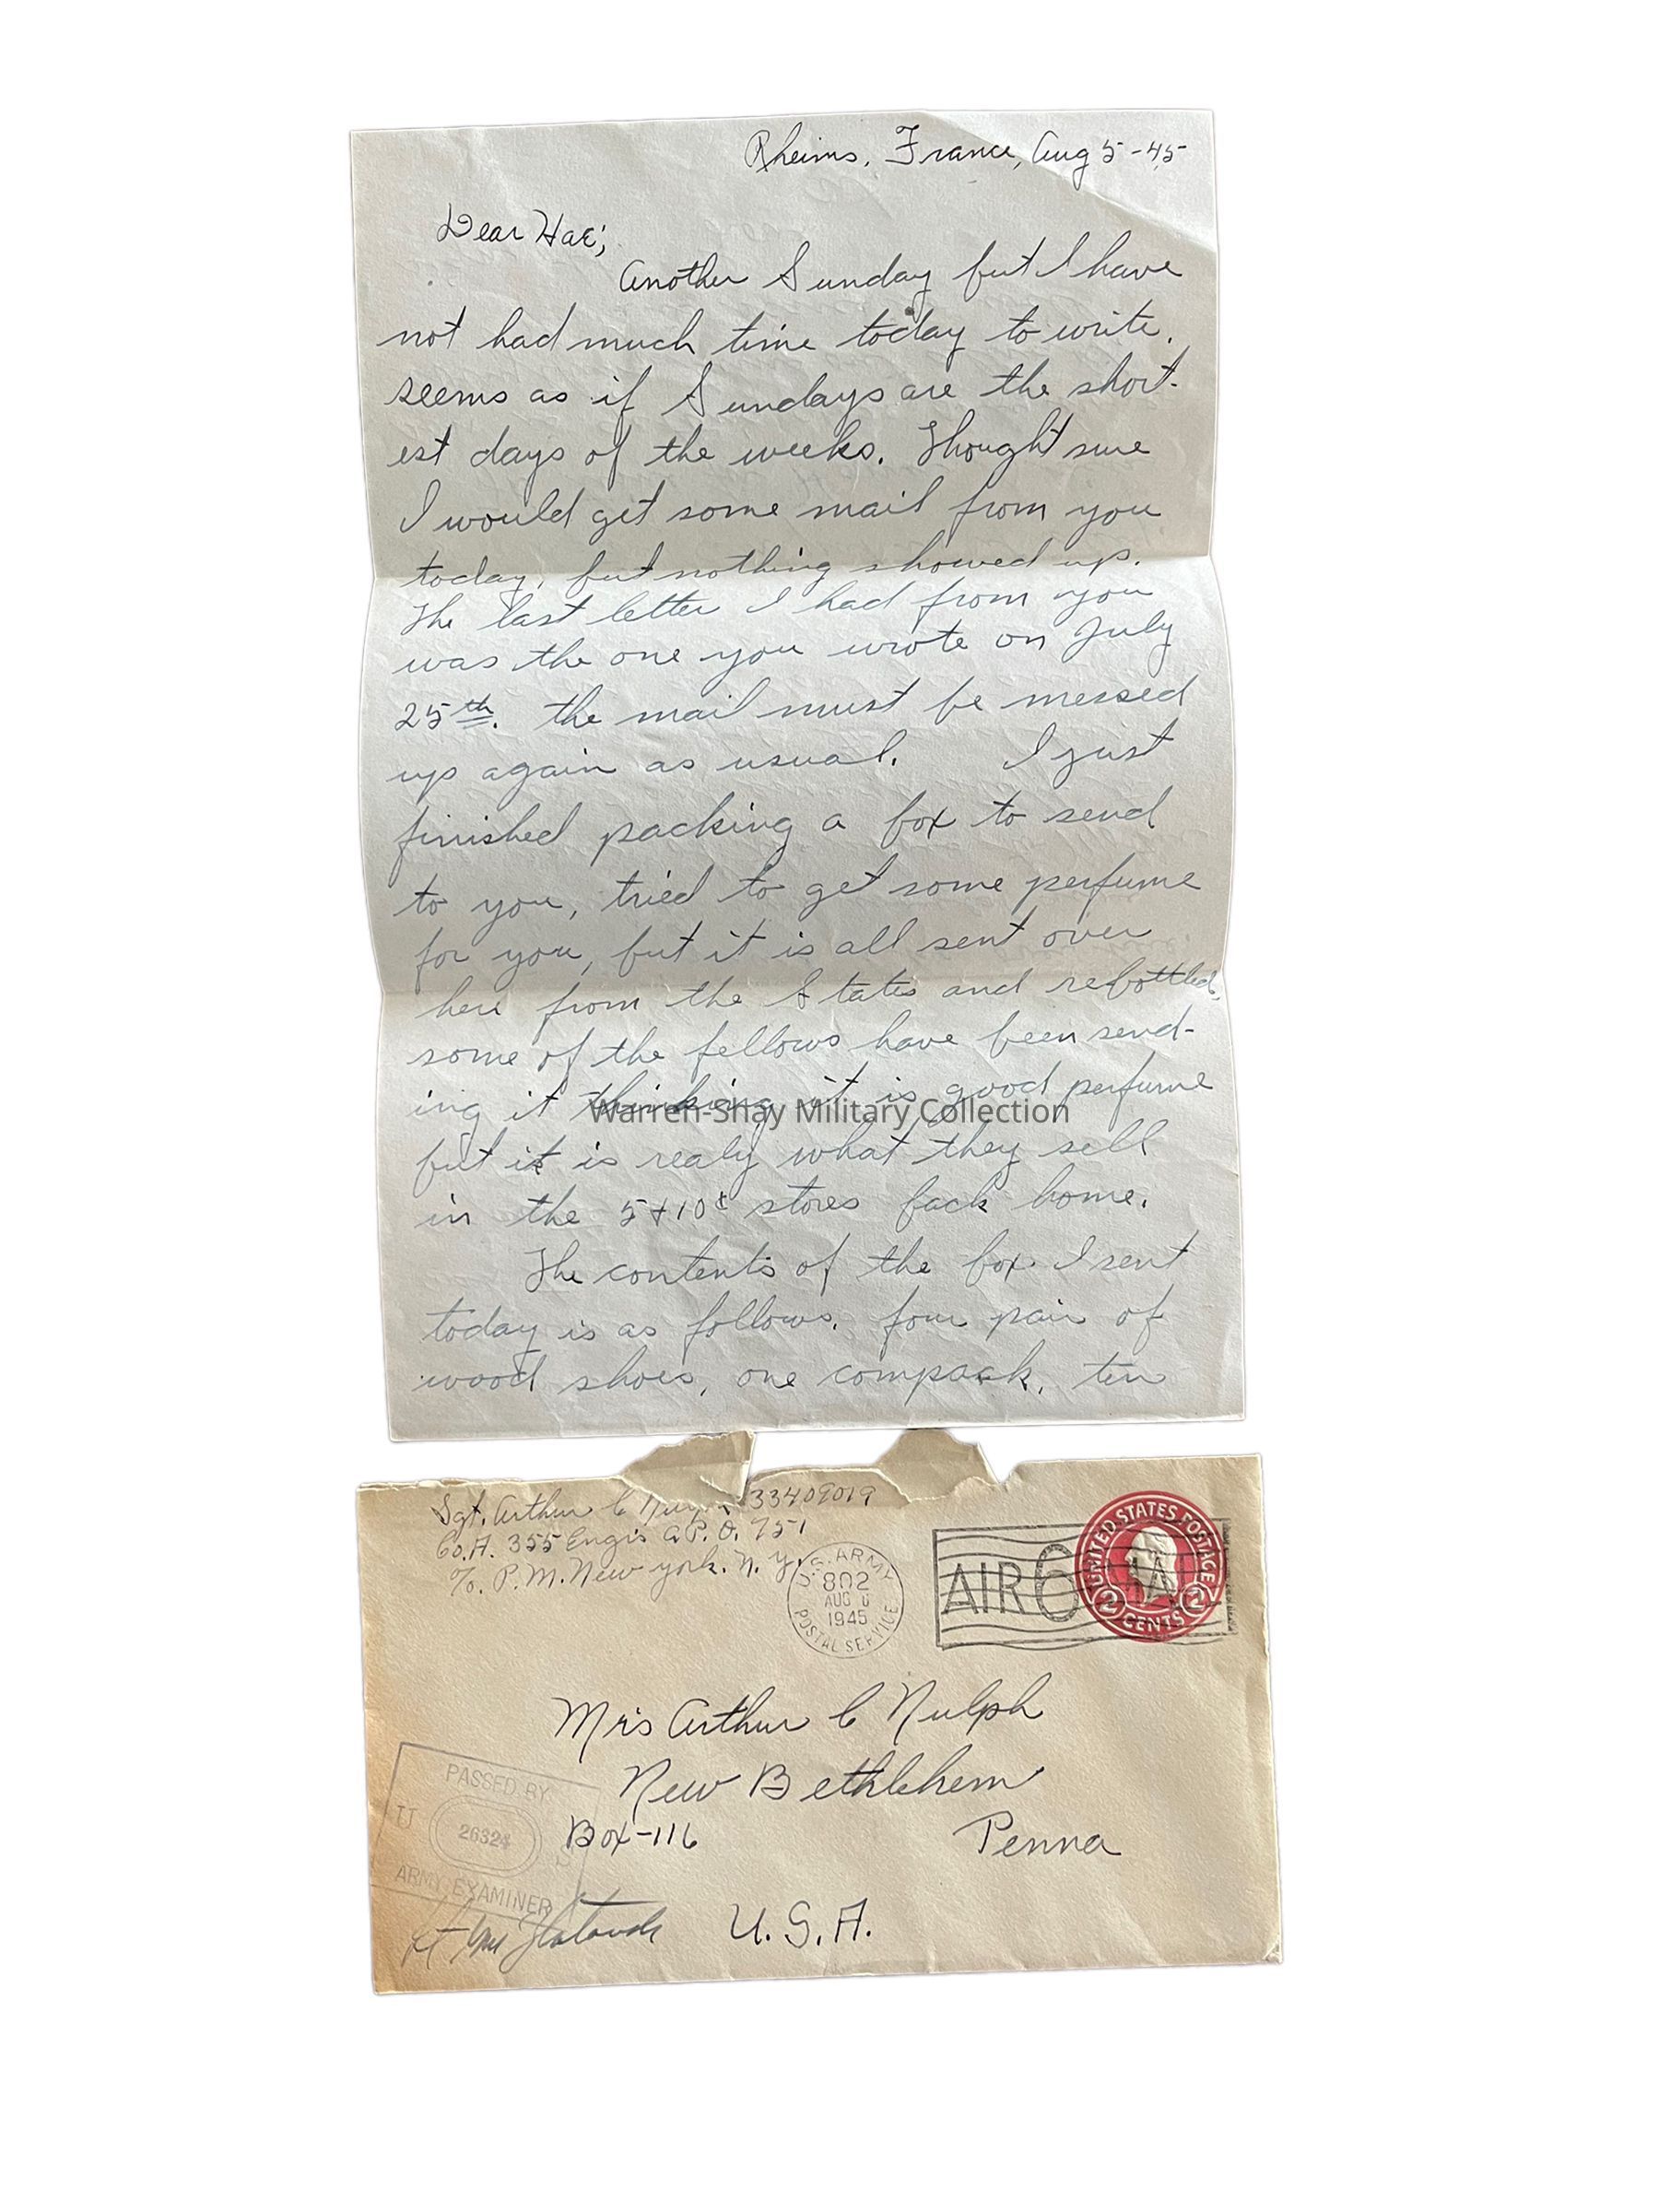 Rheims, France, Aug 5-45
Dear Hae;
Another Sunday but I have
not had much time today to write.
seems as if Sundays are the short-
est days of the weeks. Thought sure
I would get some mail from you
today, but nothing showed up.
The last letter I had from you
was the one you wrote on July
25th. the mail must be messed
up again as usual. I just
finished packing a box to send
to you, tried to get some perfume
for you, but it is all sent over
here from the States and rebottled,
some of the fellows have been send-
ing it thinking it is good perfume
Warren-Shay Military Collection
but it is realy what they sell
in the 5+10¢ stores back home.
The contents of the box I sent
today is as follows. four pair of
wood shoes, one compack, ten
Sgt. Arthur C 33409019
Co. A. 355 Engrs A.P.O. 751
%. P.M. New york. N. y.
U.S. ARMY
802
AUG 6
1945
POSTAL SERVICE
AIR 6
UNITED STATES POSTAGE
2 CENTS 2
Mrs Arthur C Nulph
New Bethlehem
Box-116 Penna
U.S.A.
PASSED BY
U 26324 S
ARMY EXAMINER
Lt